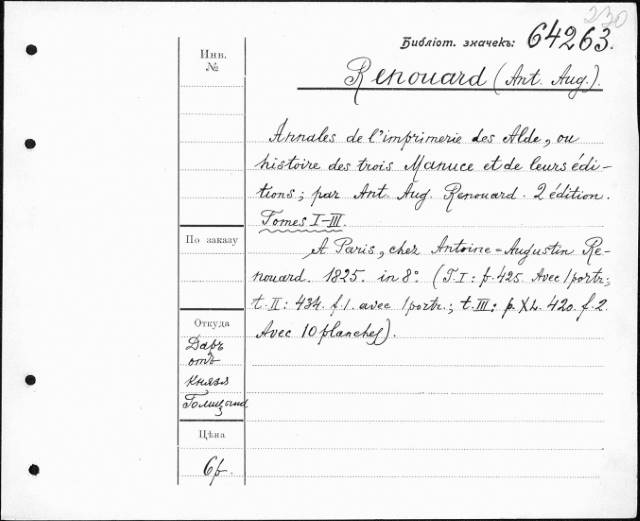 230
Библіот. значекъ: 64263.
Renouard (Ant. Aug.).
Annales de l'imprimerie des Alde, ou
histoire des trois Manuce et de leurs édi-
tions; par Ant. Aug. Renouard. 2 édition.
Tomes I-III.
A Paris, chez Antoine-Augustin Re-
nouard. 1825. in 8º. (T. I: p. 425. Avec 1 portr.;
t. II: 434. f. 1. avec 1 portr.; t. III: p. XL. 420. f. 2.
Avec 10 planches).
Инв.
№
По заказу
Откуда
Даръ
отъ
Князя
Голицына
Цѣна
6р.